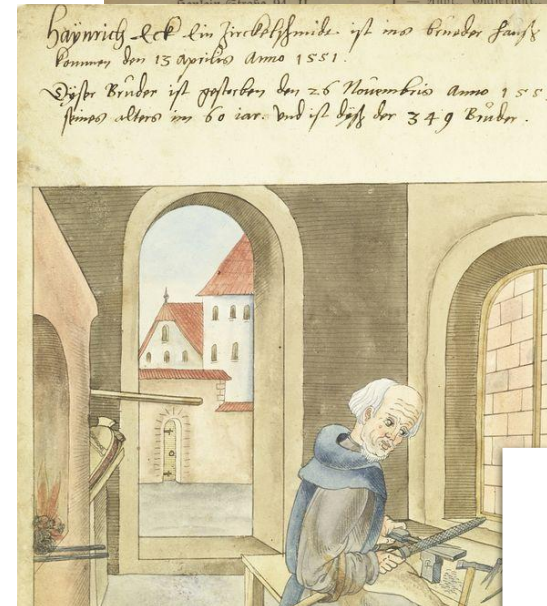 Haÿnrich Eck Ein Zirckelschmidt ist ins brueder hauß
kommen den 13 Aprilis Anno 1551.
Dÿser Bruder ist gestorben den 26 Nouembris Anno 155
seines alters im 60 iar. Vnd ist dÿß der 349 Bruder.